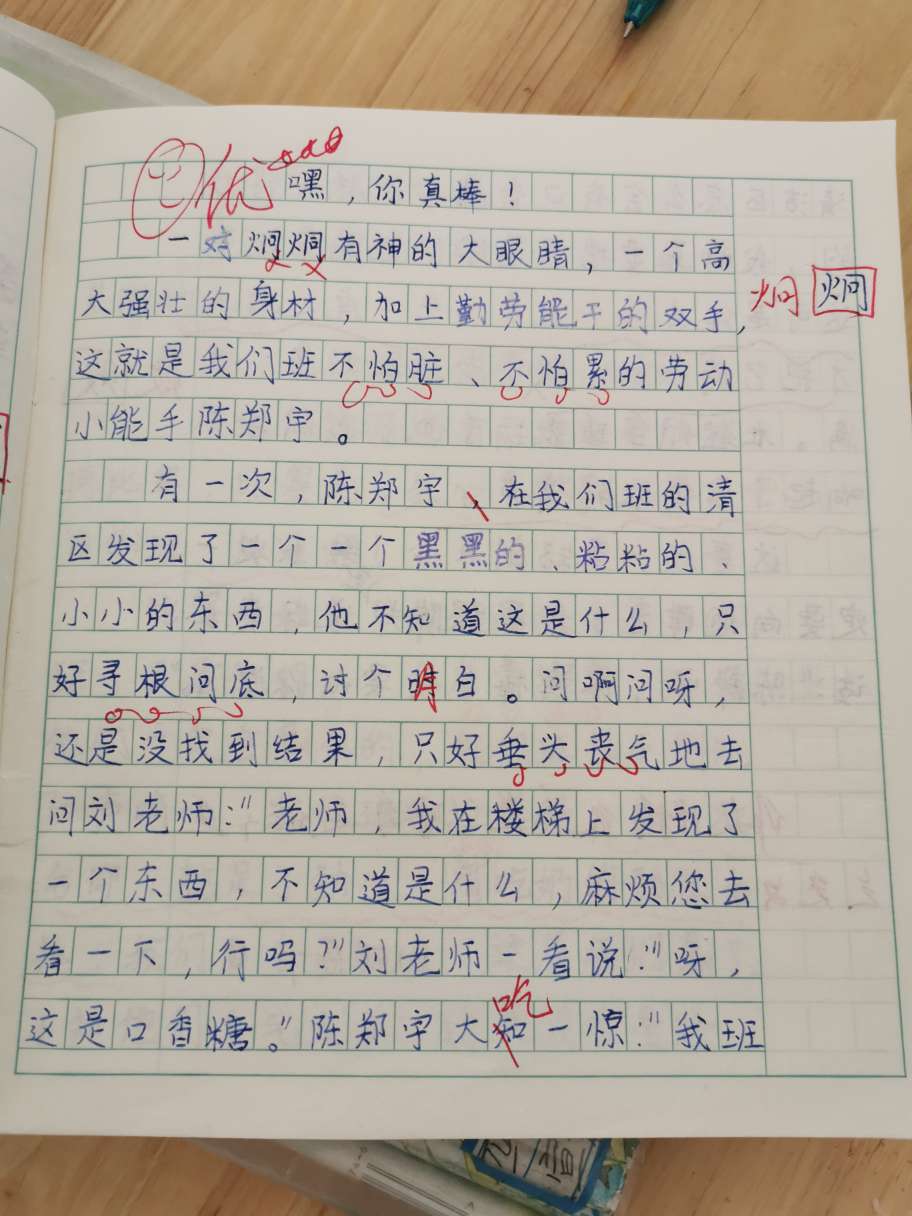 优
嘿，你真棒！
一对炯炯有神的大眼睛，一个高
大强壮的身材，加上勤劳能干的双手，
炯 炯
这就是我们班不怕脏、不怕累的劳动
小能手陈郑宇。
有一次，陈郑宇、在我们班的清
区发现了一个一个黑黑的、粘粘的、
小小的东西，他不知道这是什么，只
好寻根问底，讨个明白。问啊问呀，
还是没找到结果，只好垂头丧气地去
问刘老师："老师，我在楼梯上发现了
一个东西，不知道是什么，麻烦您去
看一下，行吗？"刘老师一看说："呀，
吃
这是口香糖。"陈郑宇大知一惊："我班